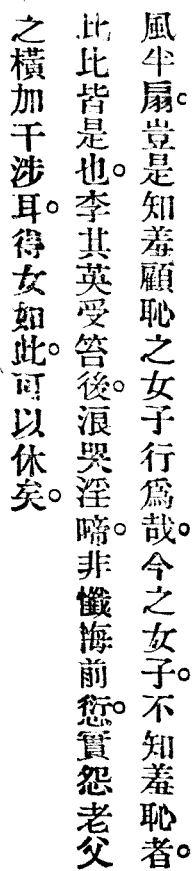 風半扇。豈是知羞顧恥之女子行爲哉。今之女子。不知羞恥者。
比比皆是也。李其英受笞後。浪哭淫啼。非懺悔前愆。實怨老父
之橫加干涉耳。得女如此。可以休矣。